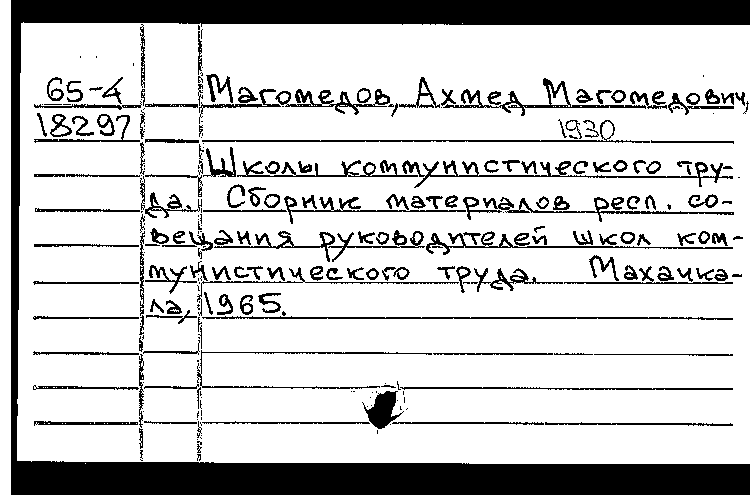 65-4 Магомедов, Ахмед Магомедович,
18297 1930
Школы коммунистического тру-
да. Сборник материалов респ. со-
вещания руководителей школ ком-
мунистического труда. Махачка-
ла, 1965.